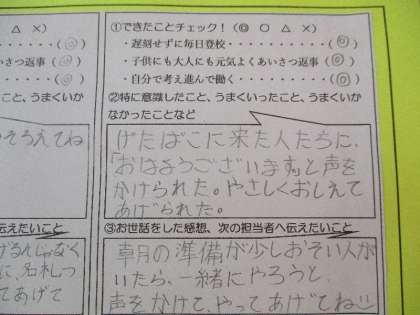 △ ×)
(◎)
いさつ返事 (◎)
(◎)
こと、うまくいか
そろえてね
伝えたいこと
げるんじゃなく
に、名札っ
てあげて
①できたことチェック！(◎ ○ △ ×)
・遅刻せずに毎日登校・・・・・・・・・(◎)
・子供にも大人にも元気よくあいさつ返事(◎)
・自分で考え進んで働く・・・・・・・・(◎)
②特に意識したこと、うまくいったこと、うまくいか
なかったことなど
げたばこに来た人たちに、
「おはようございます」と声を
かけられた。やさしくおしえて
あげられた。
③お世話をした感想、次の担当者へ伝えたいこと
朝の準備が少しおそい人が
いたら、一緒にやろうと、
声をかけて、やってあげてね